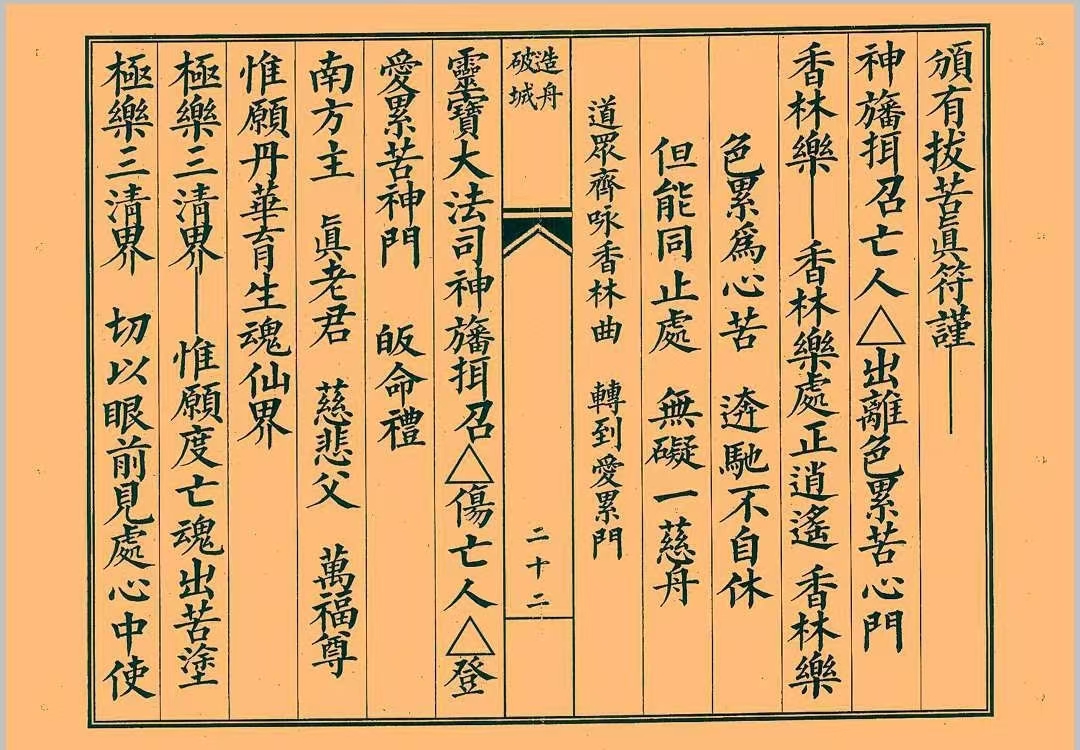 頒有拔苦眞符謹——
神旛抯召亡人△出離色累苦心門
香林樂——香林樂處正逍遙 香林樂
色累爲心苦 逩馳不自休
但能同止處 無礙一慈舟
道眾齊咏香林曲 轉到愛累門
造舟
破城
二十二
靈寶大法司神旛抯召△傷亡人△登
愛累苦神門 皈命禮
南方主 眞老君 慈悲父 萬福尊
惟願丹華育生魂仙界
極樂三清界——惟願度亡魂出苦塗
極樂三清界 切以眼前見處心中使